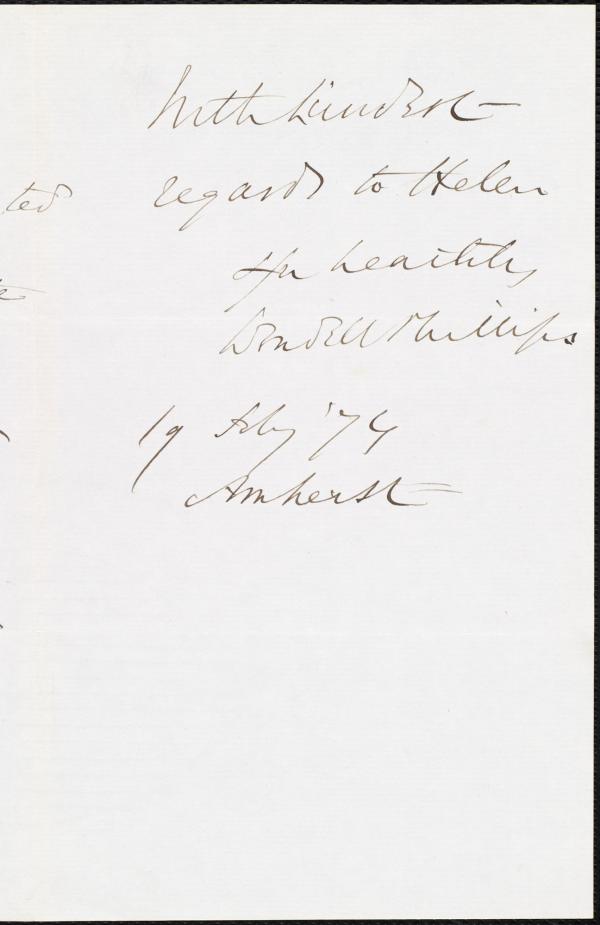 With kindest
regards to Helen
Yrs heartily
Wendell Phillips
19 July '74
Amherst
ted